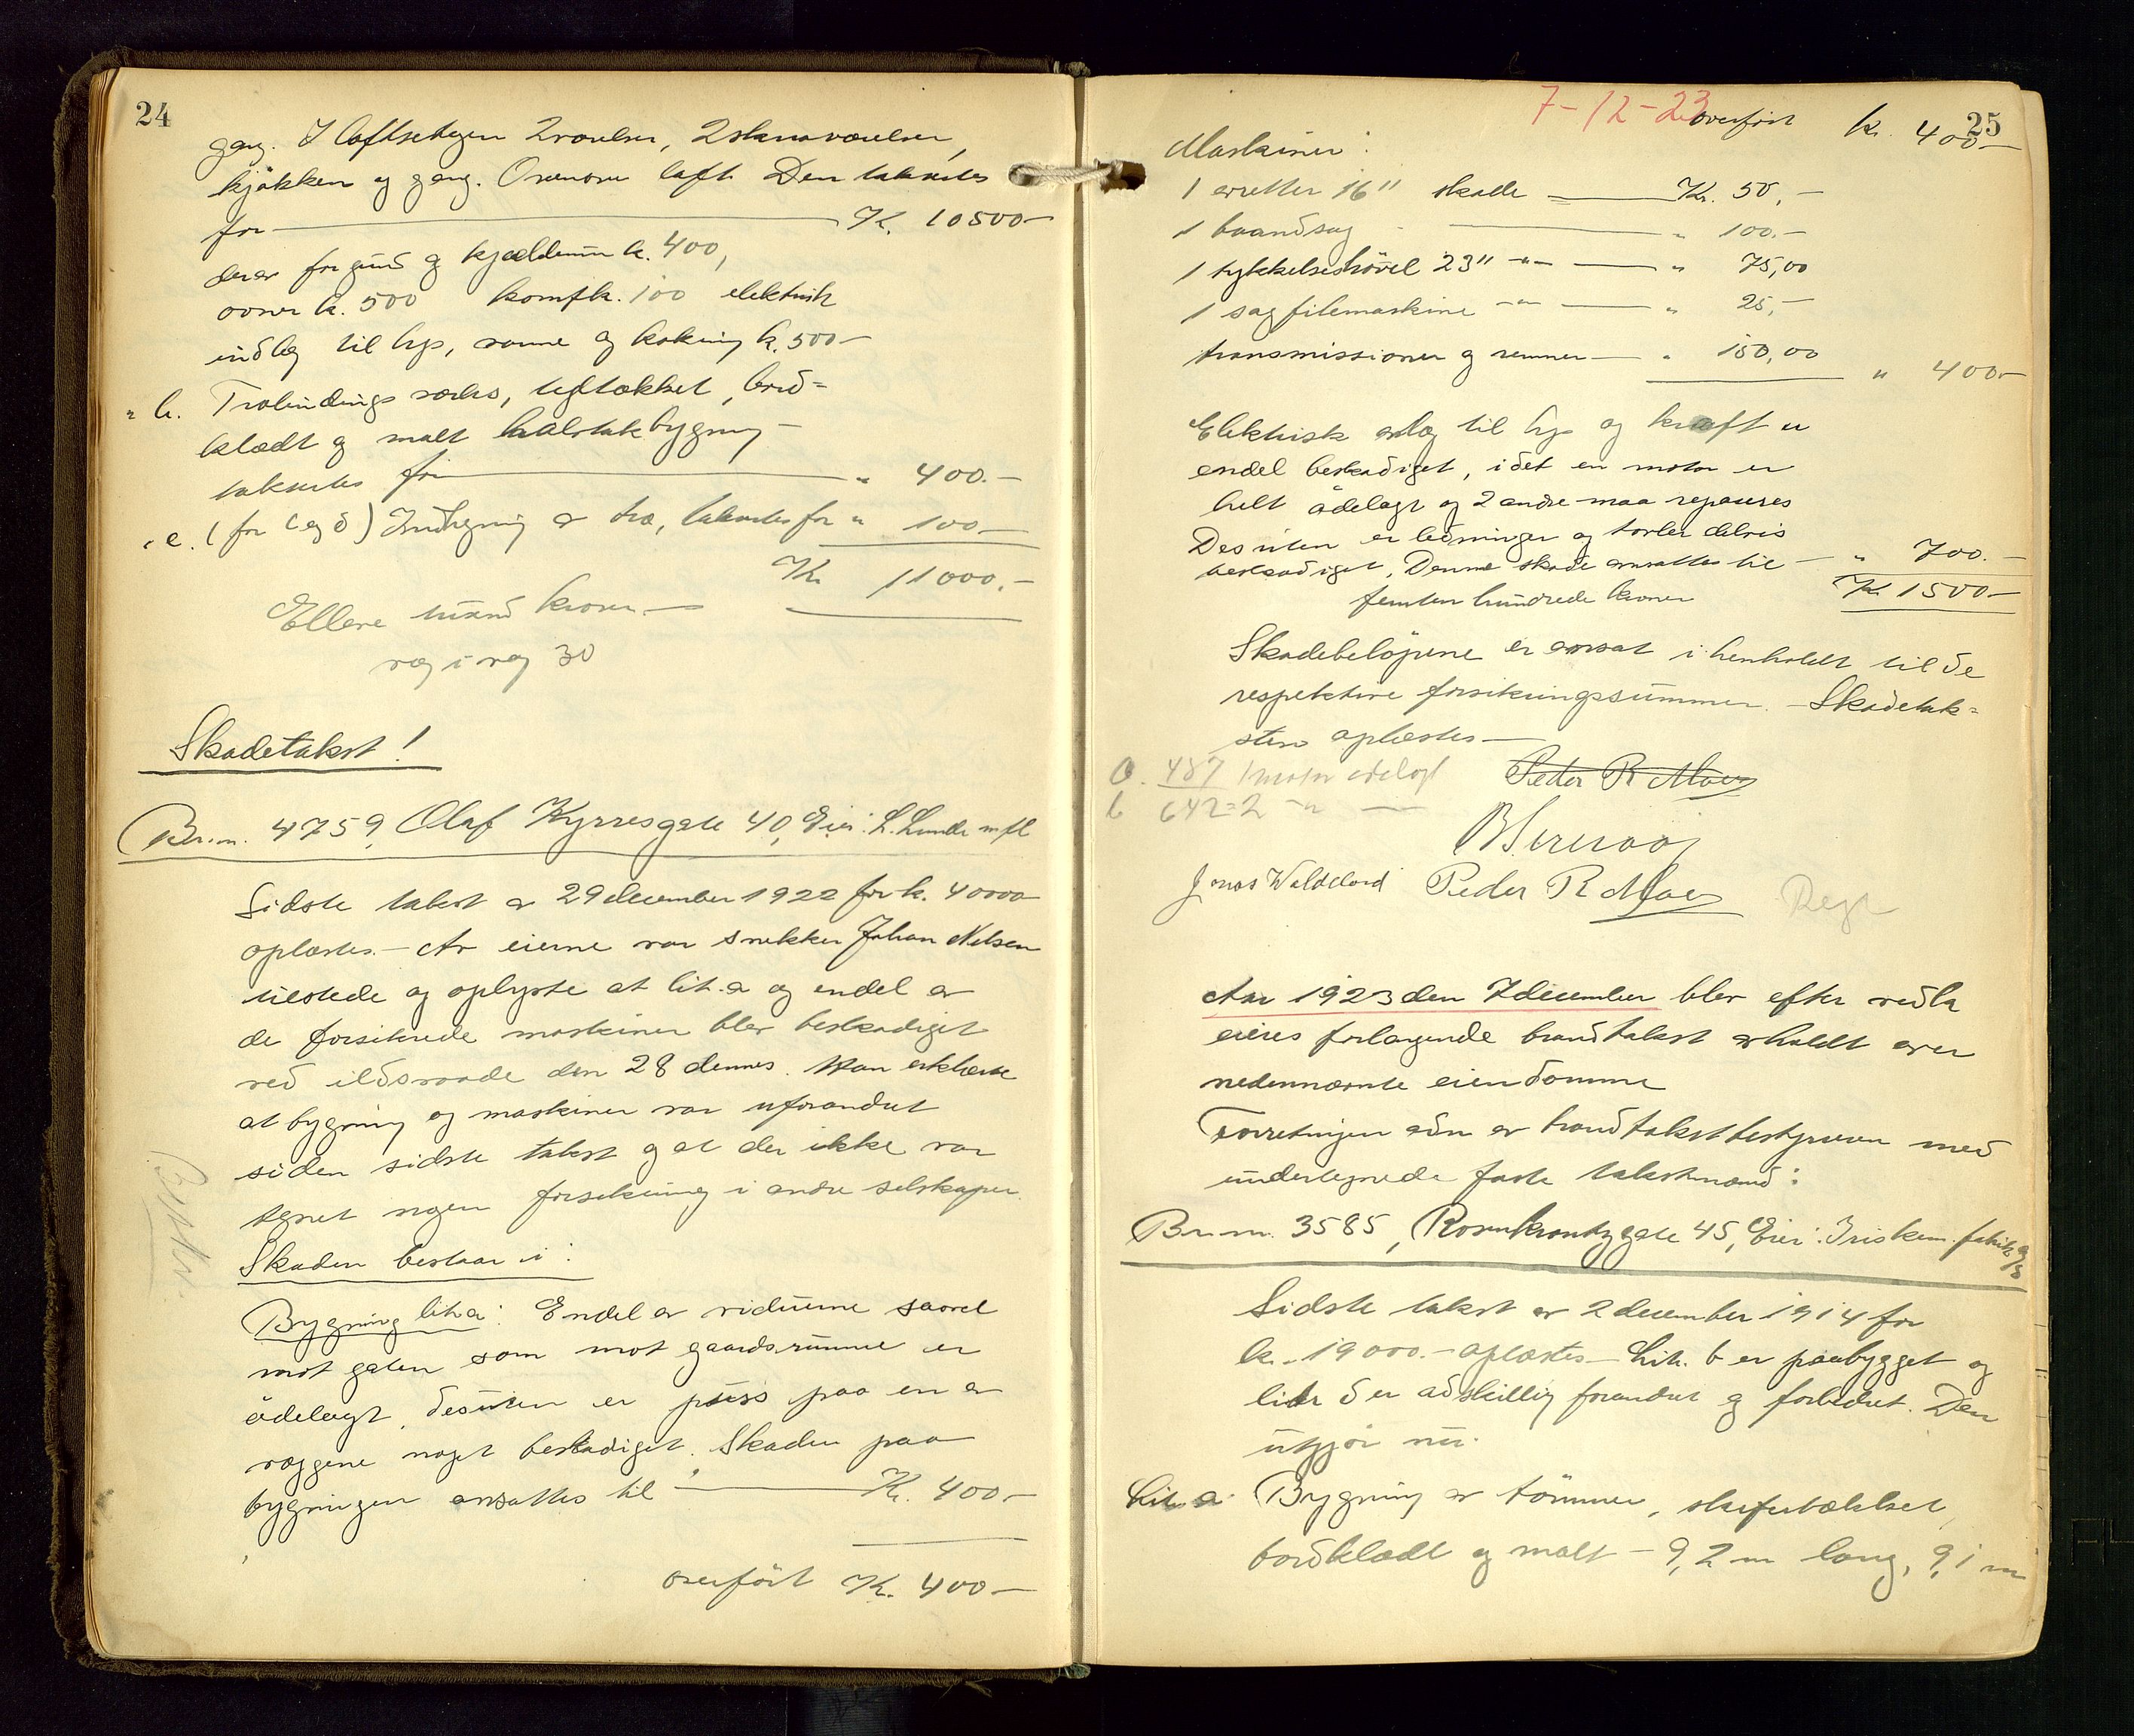 24
gang. I loftsetagen 2 værelser, 2 skraaværelser,
kjøkken og gang. Ovenover loft. Den takseres
for — Kr. 10500 —
derav for grund og kjeldermur k. 400,
ovner k. 500 komfk. 100 elektrisk
indlæg til lys, varme og kokning k. 500 —
" b. Træbindings, tegltækket, bord=
klædt og malt halvtakbygning —
takseres for — " 400. —
" c. (for c og d) Indhegning av træ, takseres for " 100 —
Kr. 11000. —
Elleve tusind kroner —
veg i veg 30
Skadetakst!
Br.nr. 4759, Olaf Kyrresgate 40, Eier: L. Lunde m fl
Sidste takst av 29 december 1922 for k. 40000
oplæstes. — Av eierne var snekker Johan Nilsen
tilstede og oplyste at lit. a og endel av
de forsikrede maskiner blev beskadiget
ved ildsvaade den 28 dennes. Han erklærte
at bygning og maskiner var uforandret
siden sidste takst og at der ikke var
tegnet nogen forsikring i andre selskaper.
Skaden bestaar i:
Bygning lit. a: Endel av viduerne saavel
mot gaten som mot gaardsrummet er
ødelagt, desuten er puss paa en av
væggene noget beskadiget. Skaden paa
bygningen ansættes til — Kr. 400 —
overført Kr. 400 —
7-12-23 overført kr. 400 —
25
Maskiner:
1 avretter 16" skade — Kr. 50, —
1 baandsag — " 100. —
1 tykkelseshøvel 23" —"— — " 75,00
1 sagfilemaskine —"— — " 25, —
transmissioner og remmer — " 150,00
" 400 —
Elektrisk anlæg til lys og kraft er
endel beskadiget, idet en motor er
helt ødelagt og 2 andre maa repareres
Desuten er ledninger og tavler delvis
beskadiget. Denne skade ansættes til — " 700. —
femten hundrede kroner Kr. 1500 —
Skadebeløpene er ansat i henhold til de
respektive forsikringssummer. — Skadetak=
sten oplæstes —
a. 487 1 motor ødelagt Peder R Moe
b 642 = 2 —"—
Jonas Waldeland Peder R Moe Regt
Aar 1923 den 7 december blev efter vedk
eieres forlangende brandtakst avholdt over
nedennævnte eiendomme
Forretningen adm av brandtakstbestyreren med
undertegnede faste takstmænd:
Br.nr. 3585, Rosenkrantzgate 45, Eier: Iris kem. fabrik a/s
Sidste takst av 2 december 1914 for
k. 19000. — oplæstes — Lit. b er paabygget og
litr d er adskillig forandret og forbedret. Den
utgjør nu.
Lit. a. Bygning av tømmer, skifertækket,
bordklædt og malt — 9,2 m lang, 9,1 m